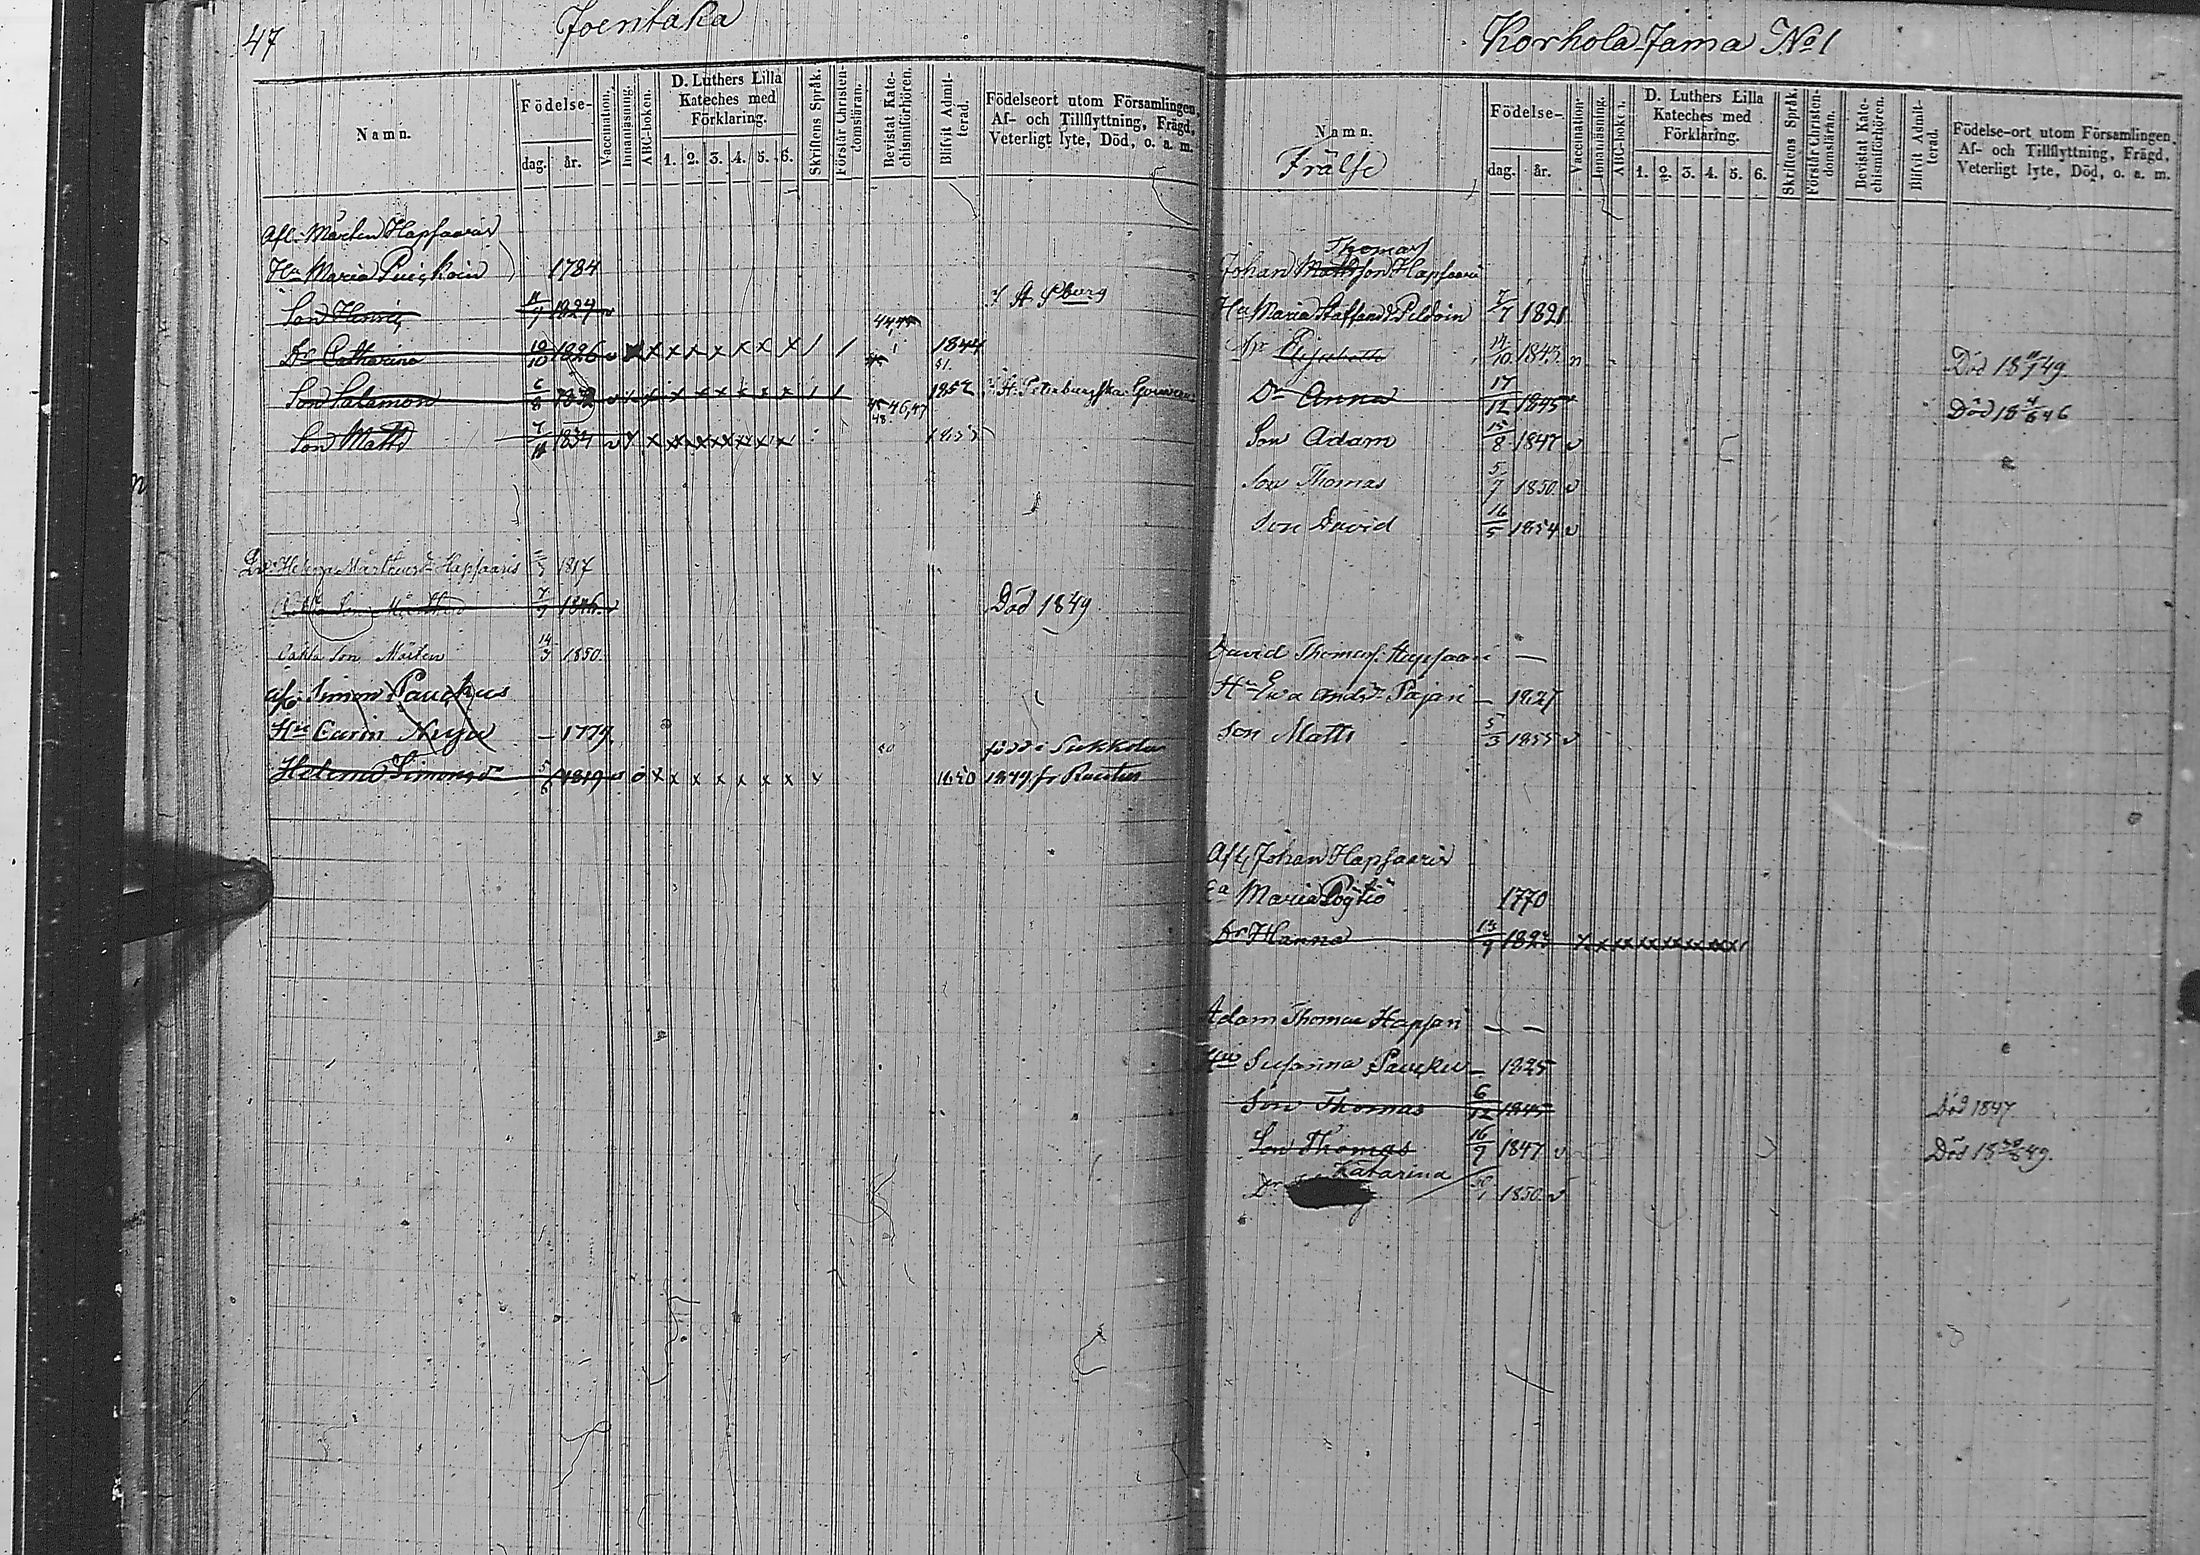 47 Joentaka
Namn. Födelse- dag. år. Vaccination. Innanläsning. ABC-boken. D. Luthers Lilla Kateches med Förklaring. 1. 2. 3. 4. 5. 6. Skriftens Språk. Förstår Christendomsläran. Bevistat Katechismiförhören. Blifvit Admitterad. Födelseort utom Församlingen, Af- och Tillflyttning, Frägd, Veterligt lyte, Död, o. a. m.
Afl. Mårten Hapsaaris
Hu Maria 1784
Son Henric 11/9 1824 v
Dr Catharina 1826 v x x x x x x x / / 1844
Son Salamon 6/8 / / 1852 St. Petersburgska
Son Matts 7/11 1834 v x x x x x x x
Helena Mårtensdr Hapsaaris 1817
7/9 1846 v Död 1849
Oäkta Son Mårten 14/3 1850.
Afl. Simon Pauckus
Hu Carin 1779
född i Sakkola
Helena Simonsdr 5/6 1819 v o x x x x x x x x 1849 fr Rautus
Korhola Jama No 1
Namn. Födelse- dag. år. Vaccination. Innanläsning. ABC-boken. D. Luthers Lilla Kateches med Förklaring. 1. 2. 3. 4. 5. 6. Skriftens Språk. Förstår Christendomsläran. Bevistat Katechismiförhören. Blifvit Admitterad. Födelse-ort utom Församlingen, Af- och Tillflyttning, Frägd, Veterligt lyte, Död, o. a. m.
Frälse
Thomas
Johan Mattsson Hapsaari
Hu Maria Staffansdr Peldoin 7/7 1821
Dr Elisabeth 14/10 1843 n Död 18 11/7 49.
Dr Anna 17/12 1845 Död 18 4/6 46
Son Adam 15/8 1847 v
Son Thomas 5/7 1850. v
Son David 16/5 1854 v
David Thomass. Hapsaari —
Hu Eva Andsdr Pajari — 1827
Son Matts 5/3 1855 v
Afl. Johan Hapsaaris
Ea Maria Pöytiö 1770
Dr Hanna 1823 x x x x x x x x x
Adam Thomas Hapsari — —
Hu Susanna Pauckus — 1825
Son Thomas 6/12 1845 Död 1847
Son Thomas 16/9 1847 v Död 18 49.
Katarina
Dr 1850. v